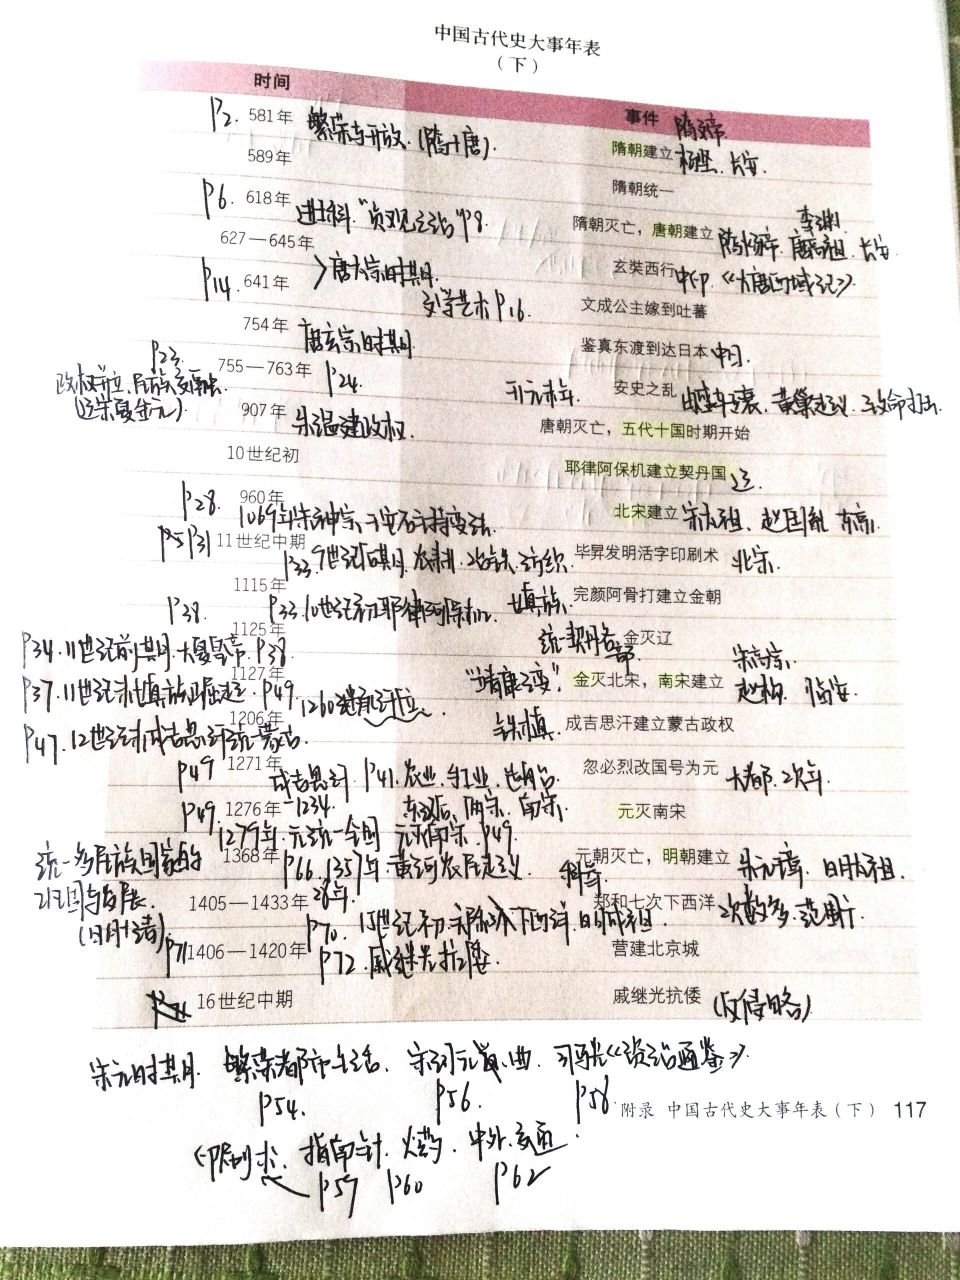 中国古代史大事年表
（下）
时间 事件 隋文帝
P2. 581年 繁荣与开放.(隋十唐). 隋朝建立 杨坚. 长安
589年 隋朝统一
P6. 618年 进士科."贞观之治"P8. 隋朝灭亡，唐朝建立 李渊
隋炀帝 唐高祖. 长安
627—645年 玄奘西行 中印.《大唐西域记》
P14. 641年 >唐太宗时期. 文成公主嫁到吐蕃
文学艺术P16.
754年 唐玄宗时期 鉴真东渡到达日本 中日.
P23.
755—763年 P24 开元末年 安史之乱 由盛转衰. 黄巢起义. 致命打击
政权并立.民族交融.
(辽宋夏金元).
907年 朱温建政权. 唐朝灭亡，五代十国时期开始
10世纪初 耶律阿保机建立契丹国 辽.
P28. 960年 北宋建立 宋太祖. 赵匡胤 东京.
1069年宋神宗.王安石主持变法.
P31 11世纪中期 毕昇发明活字印刷术 北宋.
1115年 完颜阿骨打建立金朝
女真族.
P38 P33.10世纪初耶律阿保机.
统一契丹各部
1125年 金灭辽
P34.11世纪前期.大夏皇帝.P38
1127年 "靖康之变". 金灭北宋，南宋建立 宋高宗.
赵构. 临安
P37.11世纪末女真族崛起. P49. 1260忽必烈汗位.
1206年 铁木真. 成吉思汗建立蒙古政权
P47.12世纪末成吉思汗统一蒙古
P49 1271年 忽必烈改国号为元 大都.
成吉思汗 P41.农业.手工业.
P49. 1276年 -1234. 两宋. 南宋. 元灭南宋
1279年.元统一全国 元灭南宋. P49.
统一多民族国家的
巩固与发展.
(明十清).
1368年 P66.1357年.黄河农民起义 元朝灭亡，明朝建立 朱元璋. 明太祖.
科举
1405—1433年 28年. 郑和七次下西洋 次数多.范围广
P70. 15世纪初 下西洋.明成祖.
P71 1406—1420年 P72.戚继光抗倭 营建北京城
16世纪中期 戚继光抗倭 (反侵略)
宋元时期. 繁荣都市生活. 宋词元曲. 司马光《资治通鉴》
P54. P56. P58.
附录 中国古代史大事年表（下） 117
印刷术. 指南针. 火药. 中外交通.
P59 P60 P62